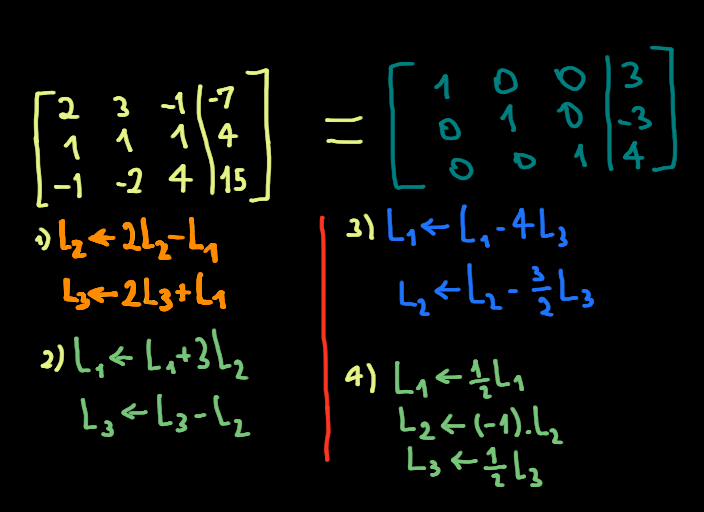 2 3 -1 | -7 = 1 0 0 | 3
1 1 1 | 4 0 1 0 | -3
-1 -2 4 | 15 0 0 1 | 4
1) L₂ ← 2L₂ - L₁
L₃ ← 2L₃ + L₁
2) L₁ ← L₁ + 3L₂
L₃ ← L₃ - L₂
3) L₁ ← L₁ - 4L₃
L₂ ← L₂ - 3/2 L₃
4) L₁ ← 1/2 L₁
L₂ ← (-1).L₂
L₃ ← 1/2 L₃